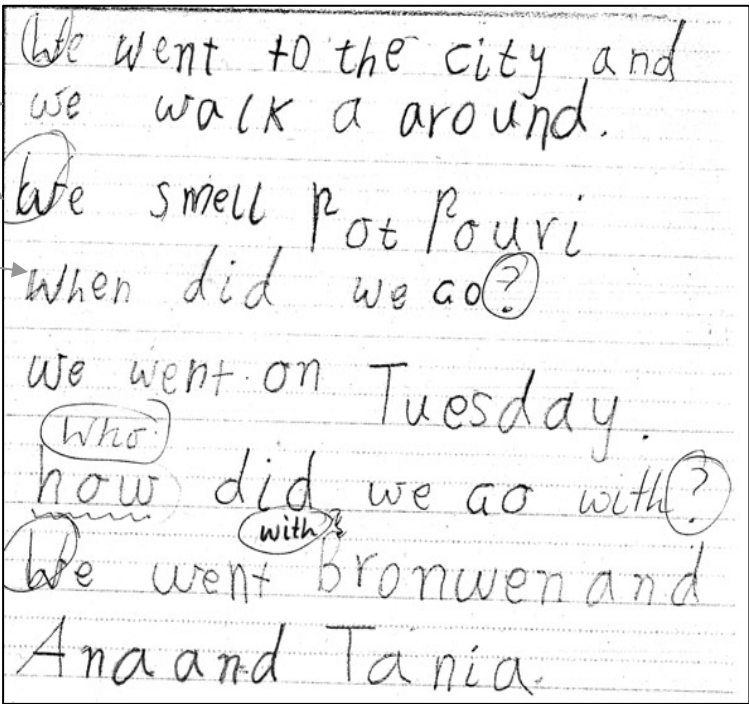 We went to the city and
we walk a around.
We smell Pot Pouri
When did we ao?
we went on Tuesday.
Who
how did we ao with?
with
We went Bronwen and
Ana and Tania.